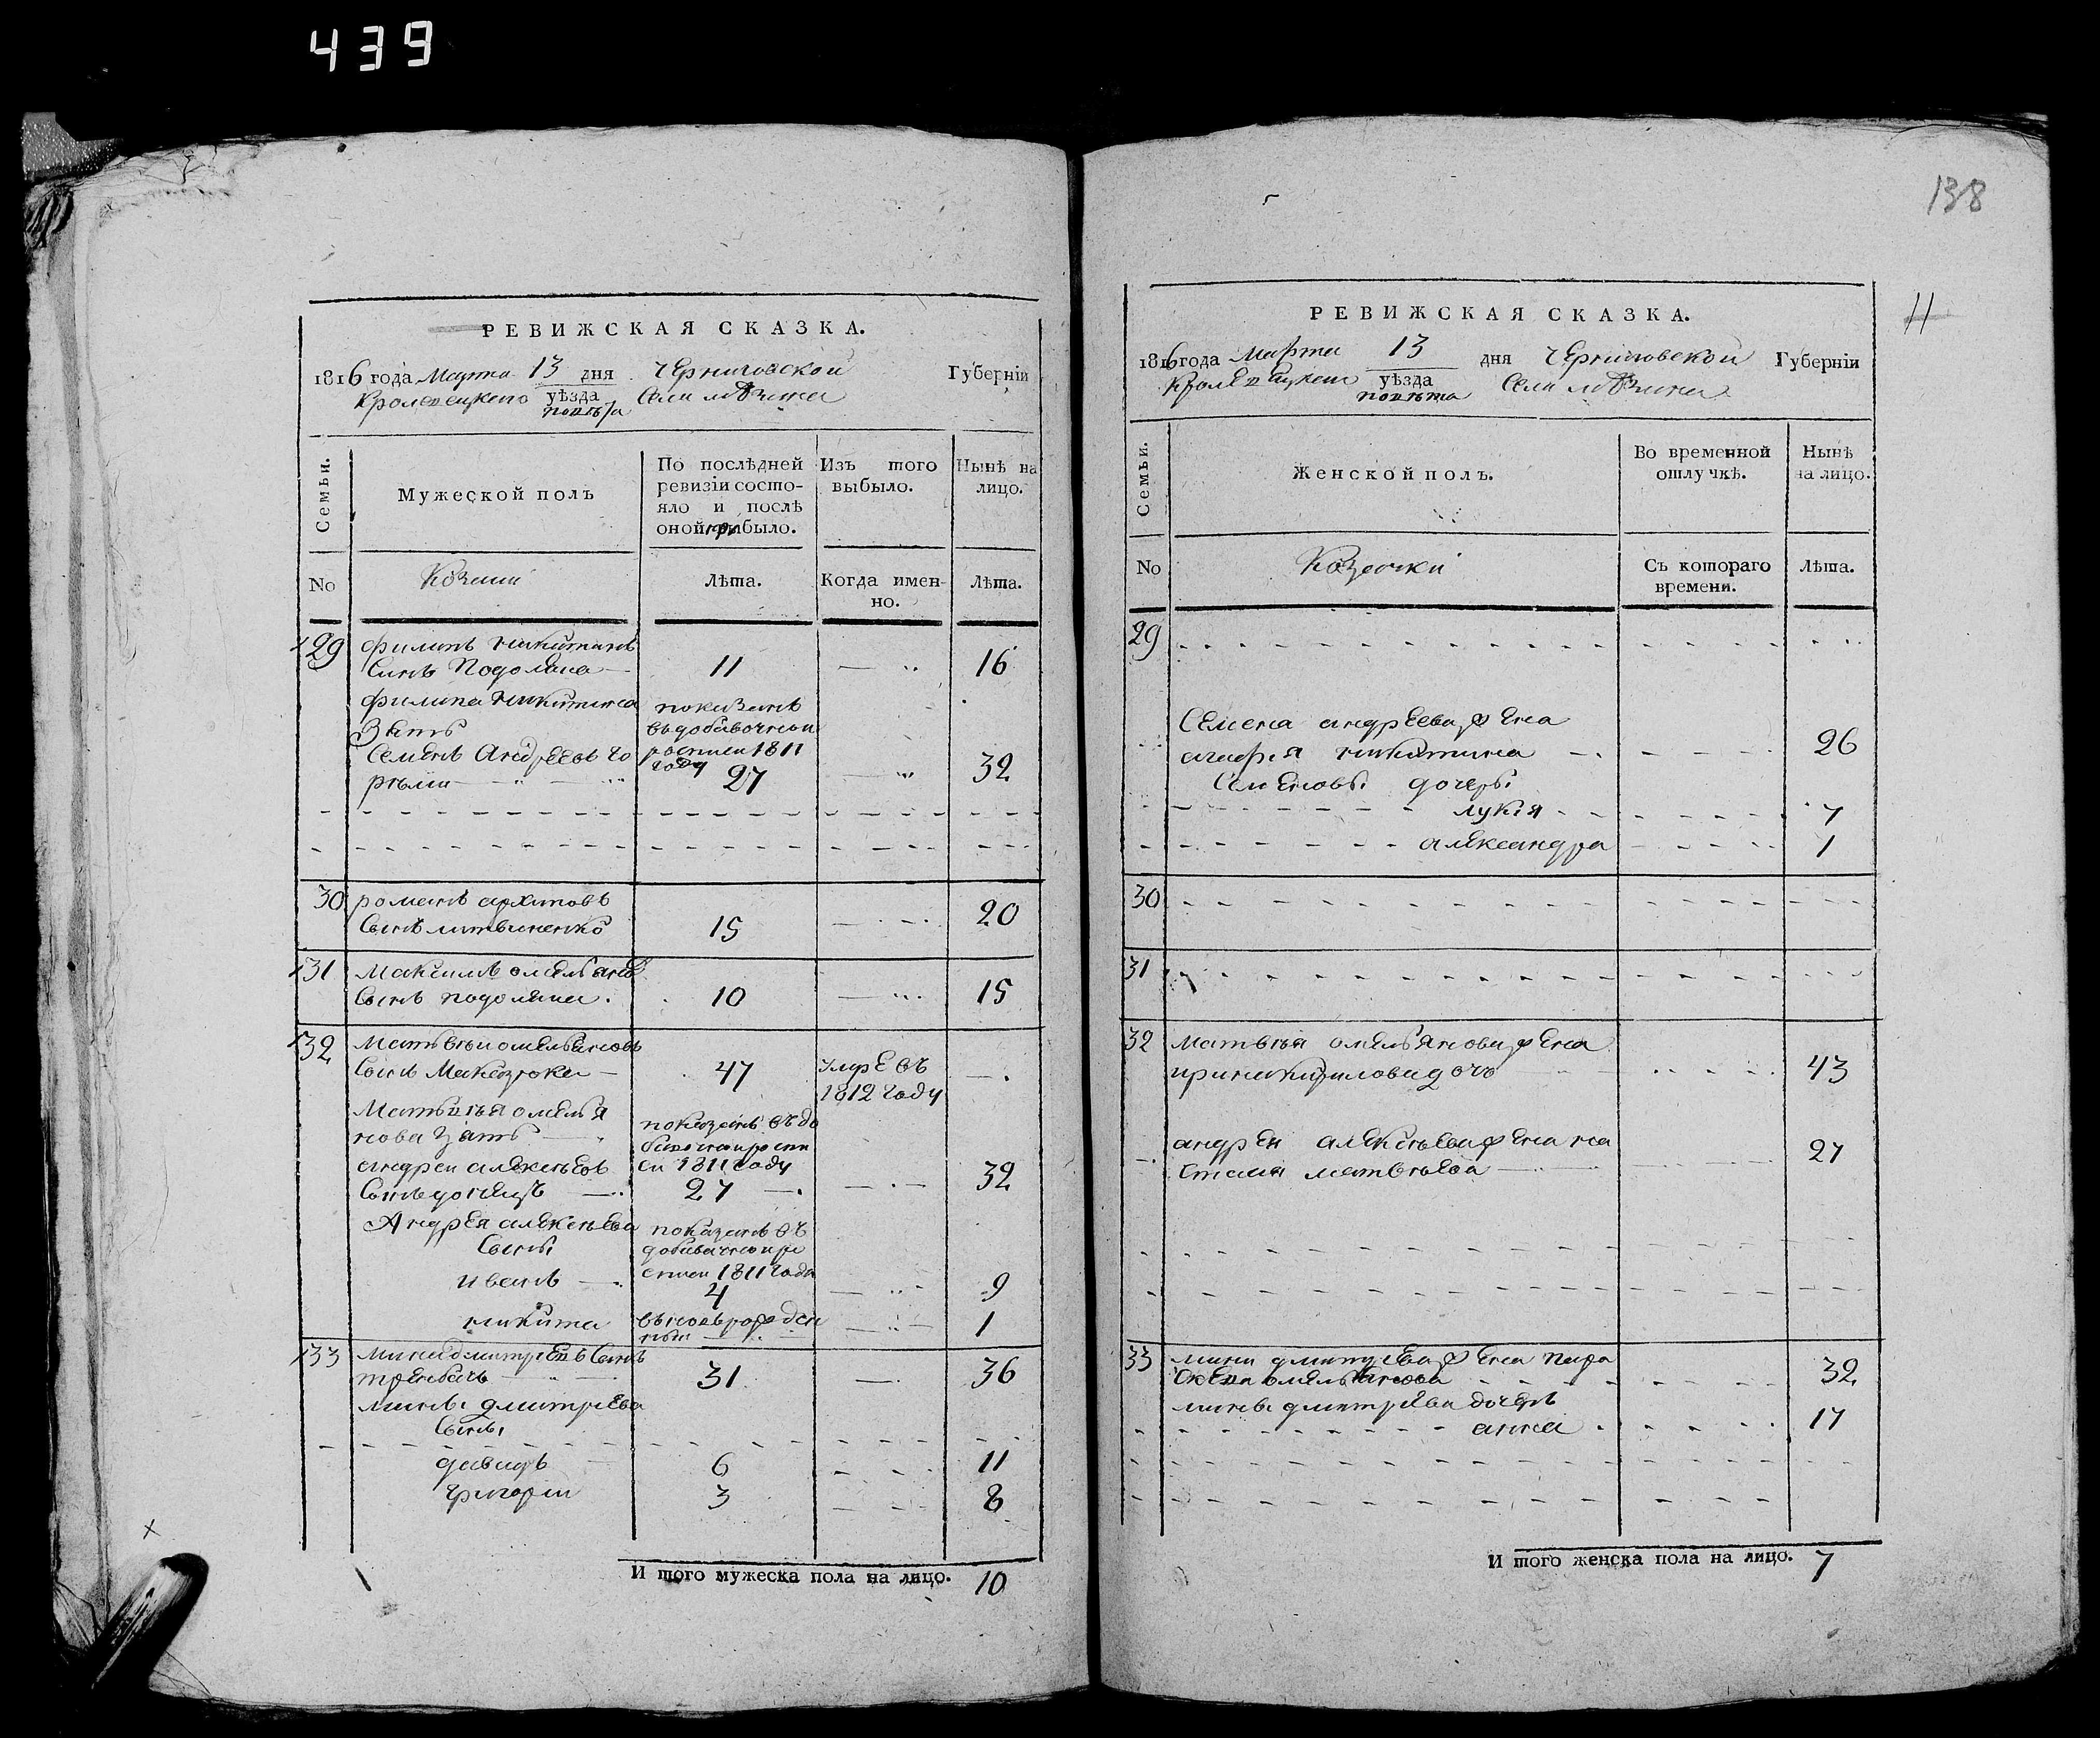 439
РЕВИЖСКАЯ СКАЗКА.
1816 года Марта 13 дня Черниговской Губерніи
Кролевецкого уѣзда Села Мѣзина
повѣта
Семьи.
Мужеской полъ
По послѣдней
ревизіи состо-
яло и послѣ
оной прибыло.
Изъ того
выбыло.
Нынѣ на
лицо.
No
Козаки
Лѣта.
Когда имен-
но.
Лѣта.
29 Филипъ никитинъ
Синъ Подоляка 11 16
Филипа никитина
Зять
Семенъ Андреевъ Го
рѣлии
показанъ
въ добавочнои
росписи 1811
году
27 32
30 романъ архиповъ
Сынъ литвиненко 15 20
31 Максимъ омельянов
Сынъ подоляка 10 15
32 Матвѣи омельяновъ
Сынъ Маказ 47
Умре въ
1812 году
Матвѣя омелья
нова Зять
андреи алексѣевъ
Сынъ донецъ
показанъ въ до
бавочнои роспи
си 1811 году
27 32
Андрея алексѣева
Сыны
иванъ
показанъ въ
добавочнои ро
списи 1811 года
4 9
никита
вновь рожден
ныи
1
33 Мина дмитріевъ Сынъ
требачь 31 36
мины дмитріева
Сыны
давидъ 6 11
Григории 3 8
И того мужеска пола на лицо. 10
138
11
РЕВИЖСКАЯ СКАЗКА.
1816 года Марта 13 дня Черниговской Губерніи
Кролевецкого уѣзда Села Мѣзина
повѣта
Семьи.
Женской полъ.
Во временной
отлучкѣ.
Нынѣ
на лицо.
No
Козачки
Съ котораго
времени.
Лѣта.
29
Семена андреева жена
агафия никитина 26
Семеновы дочери
лукия 7
александра 1
30
31
32 матвѣя омельянова жена
ирина кирилова дочь 43
андрея алексѣева жена на
стасия матвѣева 27
33 мины дмитріева жена пара
скевия омельянова 32
мины дмитріева дочерь
анна 17
И того женска пола на лицо. 7